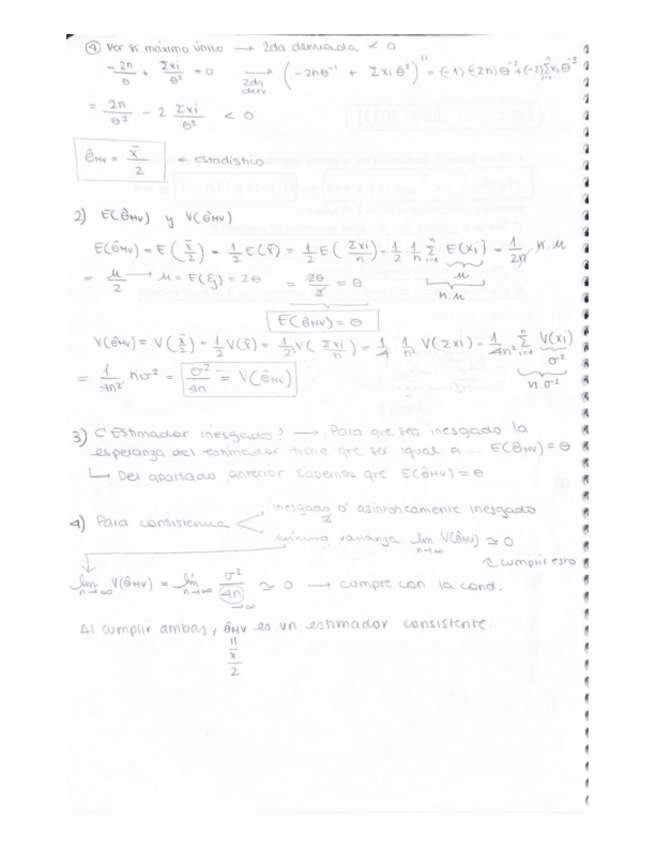 ④ Ver si máximo único → 2da derivada < 0
-2n/θ + Σxi/θ² = 0 →(2da deriv.) (-2nθ⁻¹ + Σxi θ⁻²)'' = (-1)(-2n)θ⁻² + (-2)Σxi θ⁻³
= 2n/θ² - 2 Σxi/θ³ < 0
θ̂MV = x̄/2 ← estadístico
2) E(θ̂MV) y V(θ̂MV)
E(θ̂MV) = E(x̄/2) = 1/2 E(x̄) = 1/2 E(Σxi/n) = 1/2 1/n Σ E(xi) = 1/2n n.μ
μ
n.μ
= μ/2 → μ = E(ξ) = 2θ = 2θ/2 = θ
E(θ̂MV) = θ
V(θ̂MV) = V(x̄/2) = 1/2 V(x̄) = 1/2² V(Σxi/n) = 1/4 1/n² V(Σxi) = 1/4n² Σ V(xi)
σ²
n.σ²
= 1/4n² nσ² = σ²/4n = V(θ̂MV)
3) ¿Estimador insesgado? → Para que sea insesgado la
esperanza del estimador tiene que ser igual a ... E(θ̂MV) = θ
↳ Del apartado anterior sabemos que E(θ̂MV) = θ
4) Para consistencia
insesgado o asintoticamente insesgado
mínimo varianza lim n→∞ V(θ̂MV) ≃ 0
↖ cumplir esto
lim n→∞ V(θ̂MV) = lim n→∞ σ²/4n ≃ 0 → cumple con la cond.
→∞
Al cumplir ambas, θ̂MV es un estimador consistente.
=
x̄/2